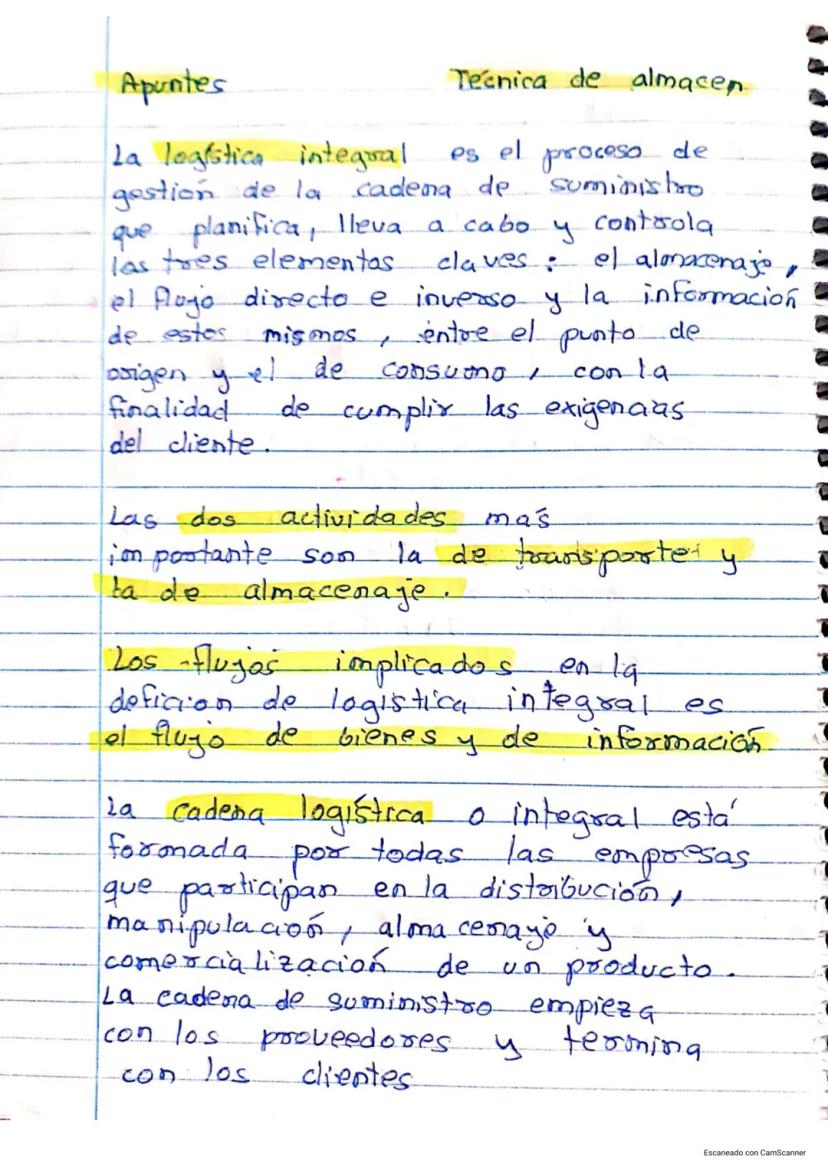 Apuntes Técnica de almacen
La logística integral es el proceso de
gestión de la cadena de suministro
que planifica, lleva a cabo y controla
las tres elementos claves: el almacenaje,
el flujo directo e inverso y la información
de estos mismos, entre el punto de
origen y el de consumo, con la
finalidad de cumplir las exigencias
del cliente.
Las dos actividades más
importante son la de transporte y
la de almacenaje.
Los flujos implicados en la
deficion de logistica integral es
el flujo de bienes y de información
La cadena logística o integral está
formada por todas las empresas
que participan en la distribución,
manipulación, almacenaje y
comercialización de un producto.
La cadena de suministro empieza
con los proveedores y termina
con los clientes
Escaneado con CamScanner